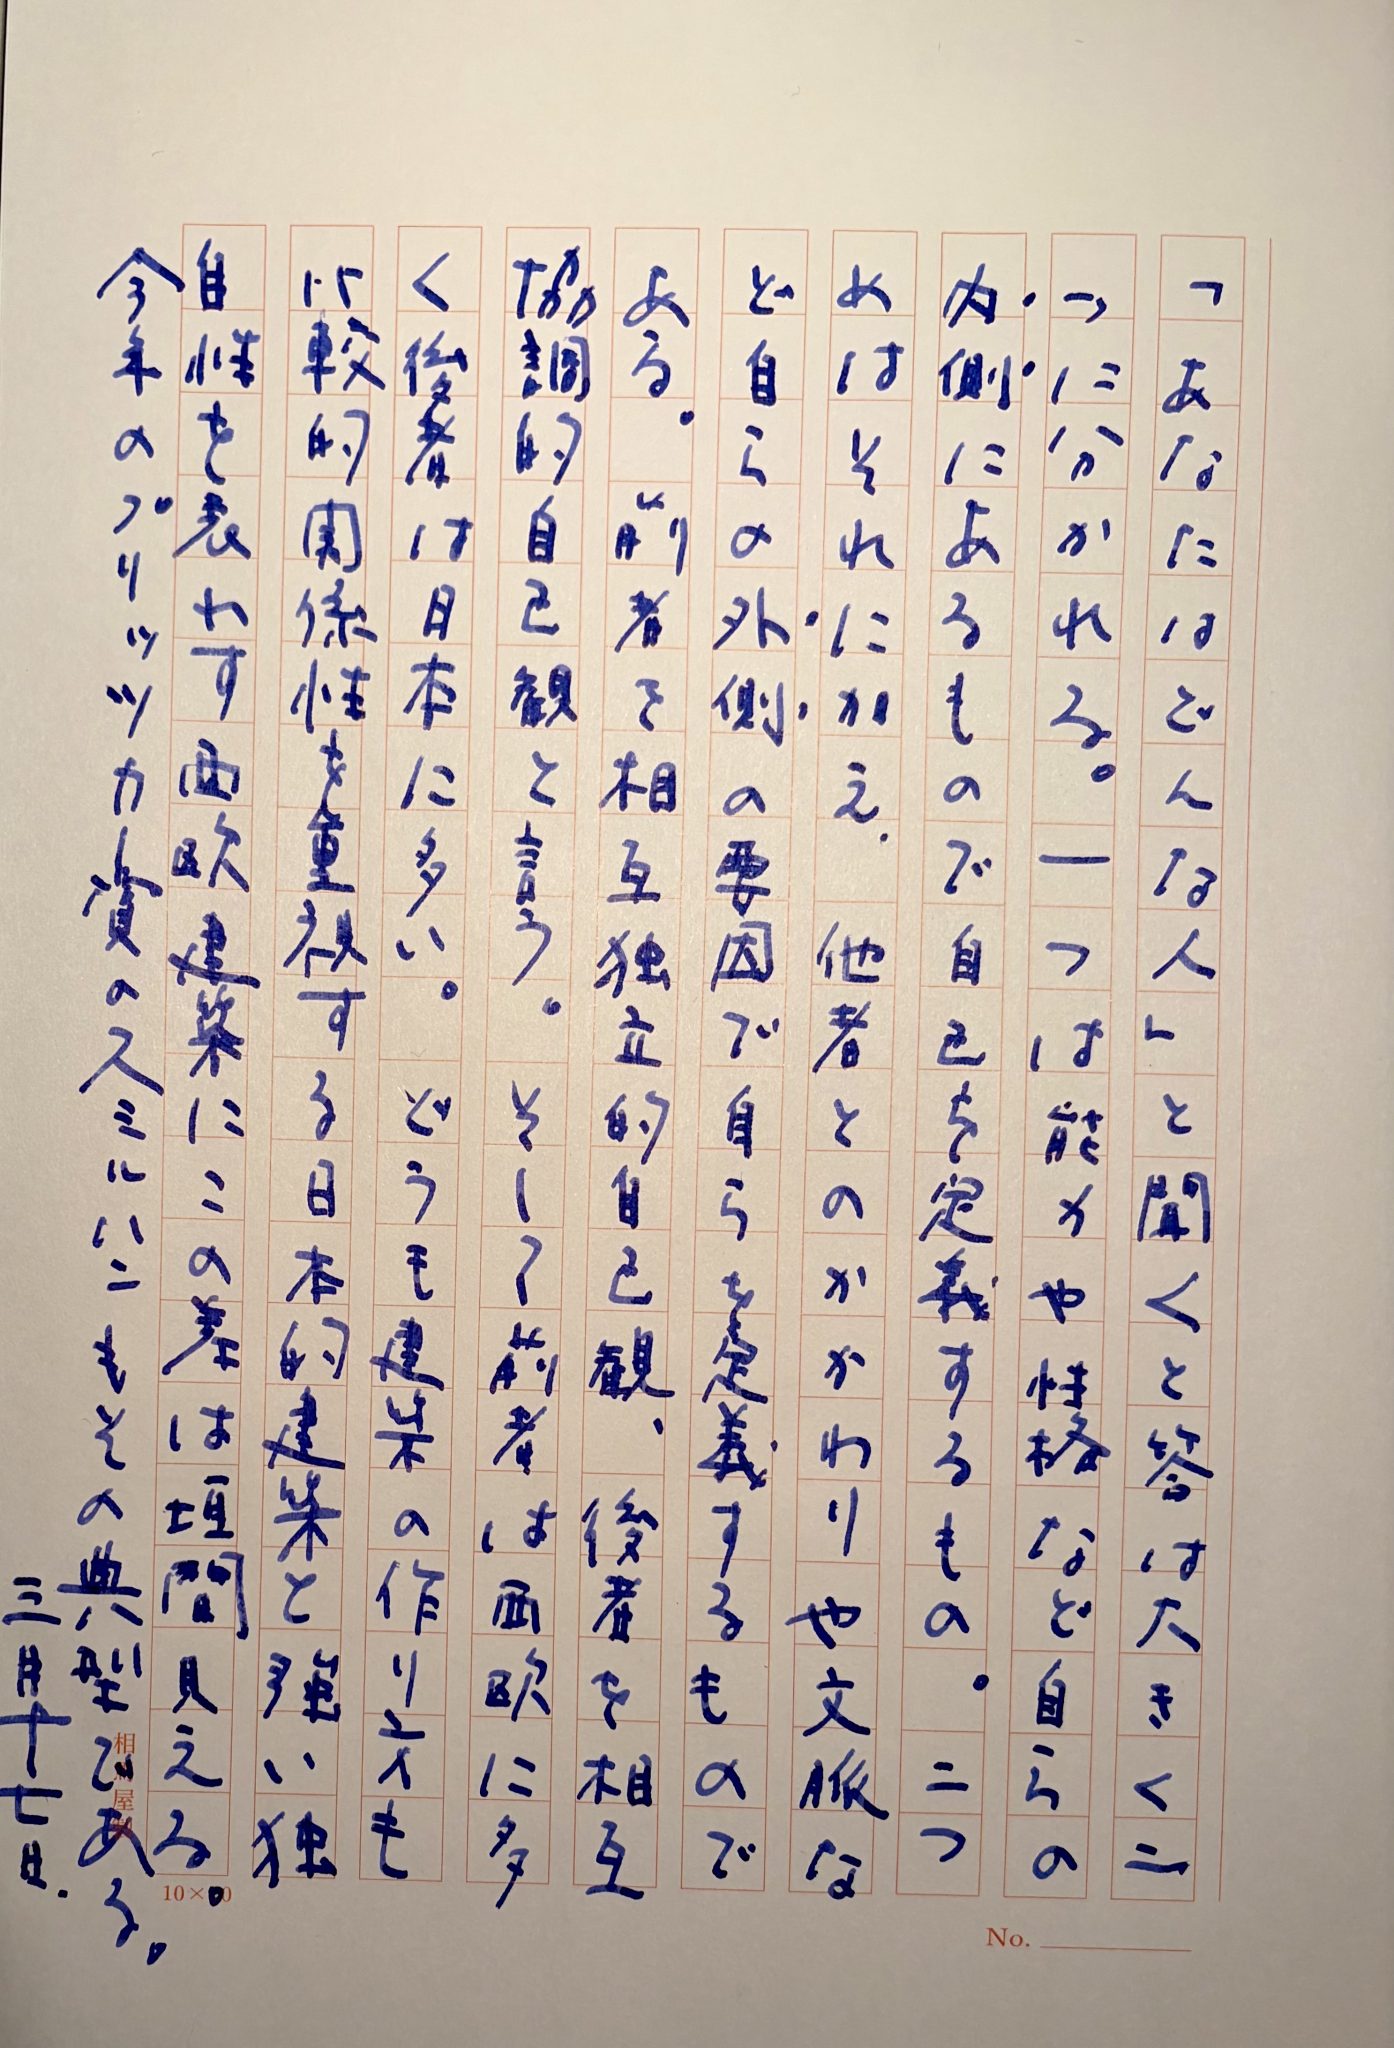 「あなたはどんな人」と聞くと答は大きく二
つに分かれる。一つは能力や性格など自らの
内側にあるもので自己を定義するもの。二つ
めはそれにかえ、他者とのかかわりや文脈な
ど自らの外側の要因で自らを定義するもので
ある。前者を相互独立的自己観、後者を相互
協調的自己観と言う。そして前者は西欧に多
く後者は日本に多い。どうも建築の作り方も
比較的関係性を重視する日本的建築と強い独
自性を表わす西欧建築にこの差は垣間見える。
今年のプリツッカー賞のスミルハンもその典型である。
三月十七日.
相馬屋
10×20
No.